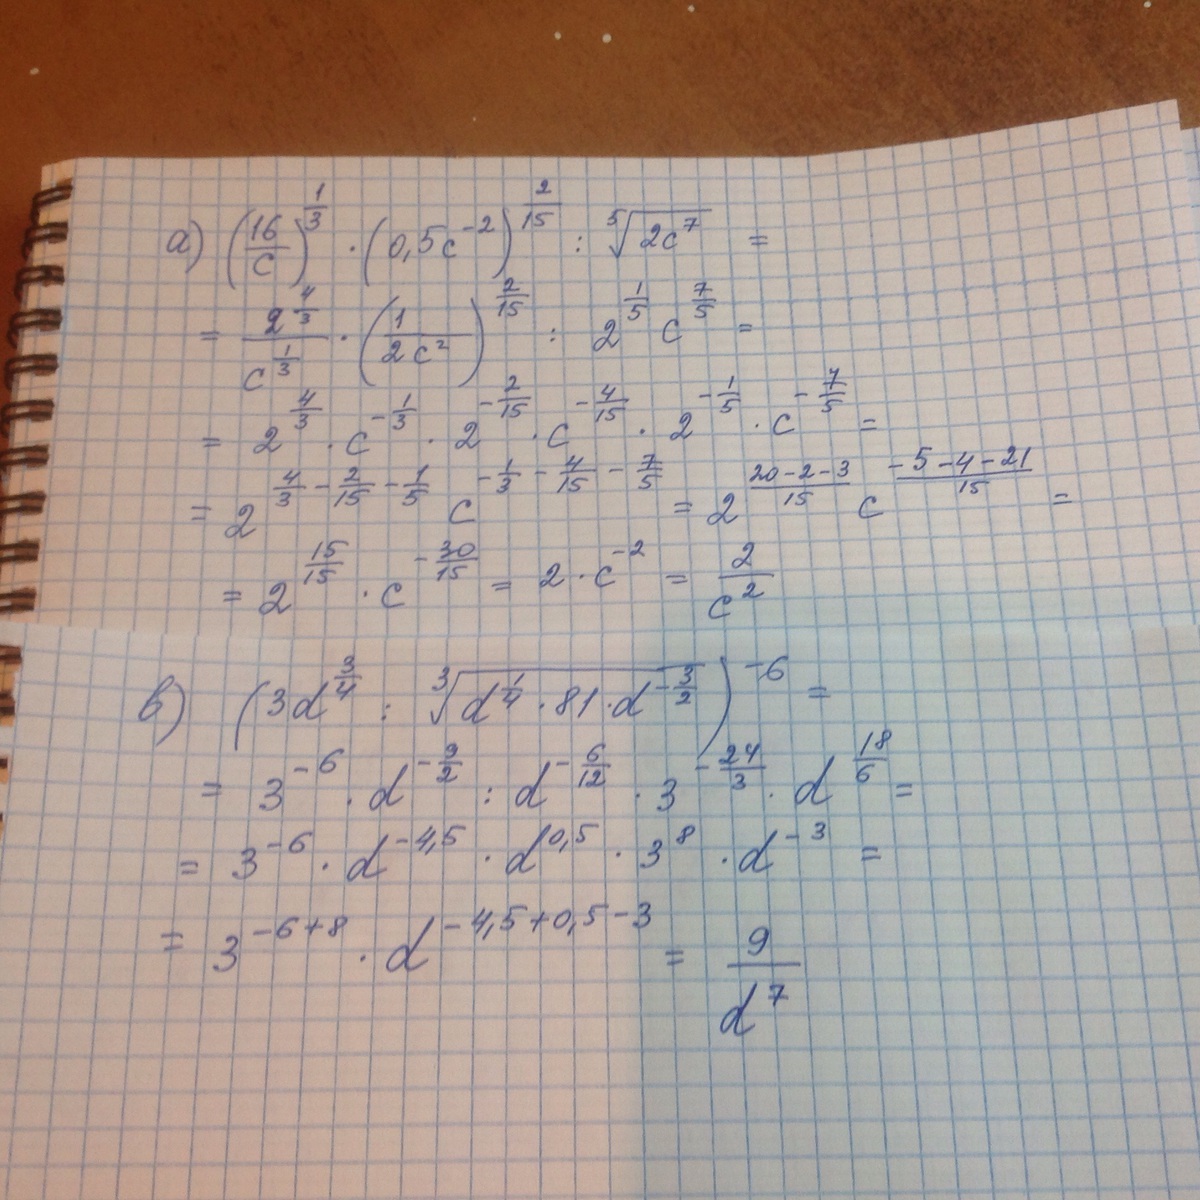 а) (16/c)^(1/3) · (0,5c^(-2))^(2/15) : ⁵√(2c^7) =
= 2^(4/3)/c^(1/3) · (1/(2c²))^(2/15) : 2^(1/5) c^(7/5) =
= 2^(4/3) · c^(-1/3) · 2^(-2/15) · c^(-4/15) · 2^(-1/5) · c^(-7/5) =
= 2^(4/3 - 2/15 - 1/5) c^(-1/3 - 4/15 - 7/5) = 2^((20-2-3)/15) c^((-5-4-21)/15) =
= 2^(15/15) · c^(-30/15) = 2 · c^(-2) = 2/c^2
в) (3d^(3/4) : ³√(d^(1/4) · 81 · d^(-3/2)))^(-6) =
= 3^(-6) · d^(-9/2) : d^(-6/12) · 3^(-24/3) · d^(18/6) =
= 3^(-6) · d^(-4,5) · d^(0,5) · 3^8 · d^(-3) =
= 3^(-6+8) · d^(-4,5+0,5-3) = 9/d^7